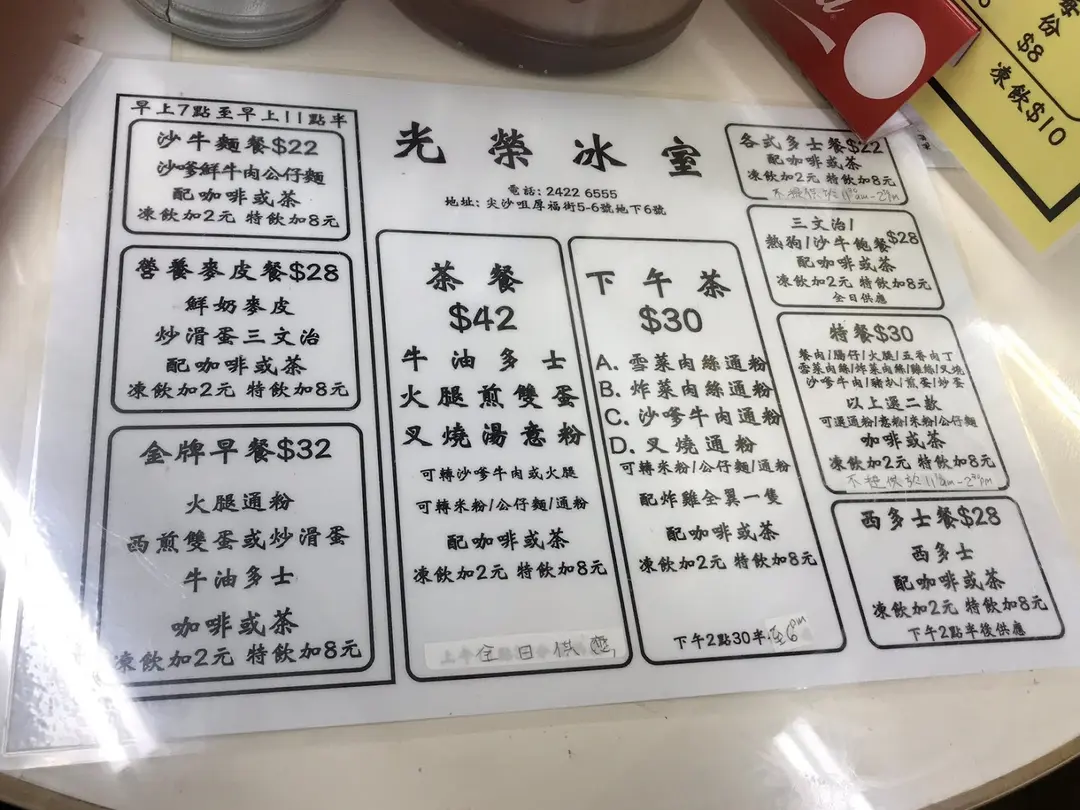 早上7點至早上11點半
沙牛麵餐$22
沙嗲鮮牛肉公仔麵
配咖啡或茶
凍飲加2元 特飲加8元
營養麥皮餐$28
鮮奶麥皮
炒滑蛋三文治
配咖啡或茶
凍飲加2元 特飲加8元
金牌早餐$32
火腿通粉
西煎雙蛋或炒滑蛋
牛油多士
咖啡或茶
凍飲加2元 特飲加8元
光榮冰室
電話: 2422 6555
地址: 尖沙咀厚福街5-6號地下6號
茶餐
$42
牛油多士
火腿煎雙蛋
叉燒湯意粉
可轉沙嗲牛肉或火腿
可轉米粉/公仔麵/通粉
配咖啡或茶
凍飲加2元 特飲加8元
全日供應
下午茶
$30
A. 雪菜肉絲通粉
B. 炸菜肉絲通粉
C. 沙嗲牛肉通粉
D. 叉燒通粉
可轉米粉/公仔麵/通粉
配炸雞全翼一隻
配咖啡或茶
凍飲加2元 特飲加8元
下午2點30半至6pm
各式多士餐$22
配咖啡或茶
凍飲加2元 特飲加8元
三文治/
熱狗/沙牛飽餐$28
配咖啡或茶
凍飲加2元 特飲加8元
全日供應
特餐$30
餐肉/腸仔/火腿/五香肉丁
雪菜肉絲/炸菜肉絲/雞絲/叉燒
沙嗲牛肉/豬扒/煎蛋/炒蛋
以上選二款
可選通粉/意粉/米粉/公仔麵
咖啡或茶
凍飲加2元 特飲加8元
西多士餐$28
西多士
配咖啡或茶
凍飲加2元 特飲加8元
下午2點半後供應
每份
$8
凍飲$10